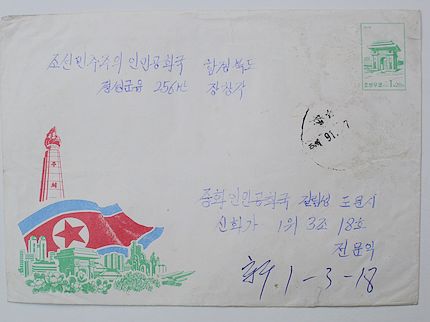 조선민주주의 인민공화국 함경북도
경성군읍 256반 장창각
조선우표
주체
91. 7
중화인민공화국 길림성 도문시
신화가 1위 3조 18호
전문악
1-3-18